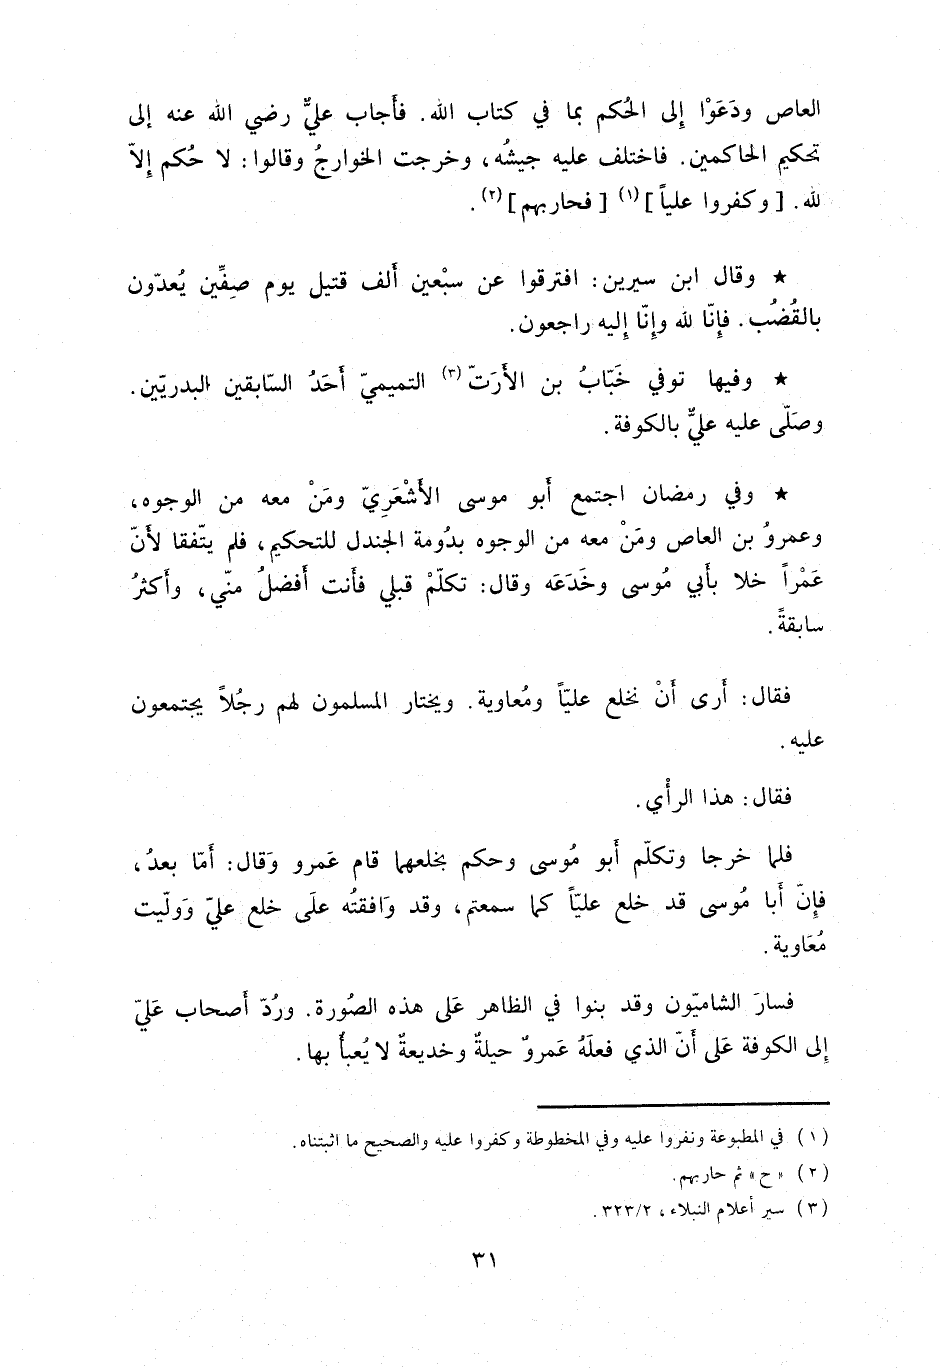 العاص ودَعَوْا إِلى الحُكم بما في كتاب الله. فأَجاب عليٌّ رضي الله عنه إلى
تحكيم الحاكمين. فاختلف عليه جيشُه، وخرجت الخوارجُ وقالوا: لا حُكم إِلاّ
لله. [وكفروا علياً](١) [فحاربهم](٢).
★ وقال ابن سيرين: افترقوا عن سبْعين أَلف قتيل يوم صِفِّين يُعدّون
بالقُضُب. فإِنّا لله وإِنّا إِليه راجعون.
★ وفيها توفي خَبّابُ بن الأَرَتّ(٣) التميميّ أَحَدُ السّابقين البدريّين.
وصَلّى عليه عليٌّ بالكوفة.
★ وفي رمضان اجتمع أَبو موسى الأَشْعَرِيّ ومَنْ معه من الوجوه،
وعمروُ بن العاص ومَنْ معه من الوجوه بدُومة الجندل للتحكيم، فلم يتّفقا لأَنّ
عَمْراً خلا بأَبي مُوسى وخَدَعَه وقال: تكلّمْ قبلي فأَنت أَفضلُ منّي، وأَكثرُ
سابقةً.
فقال: أَرى أَنْ نخلع عليّاً ومُعاوية. ويختار المسلمون لهم رجُلاً يجتمعون
عليه.
فقال: هذا الرأْي.
فلما خرجا وتكلّم أَبو مُوسى وحكم بخلعهما قام عَمرو وَقال: أَمّا بعدُ،
فإِنّ أَبا مُوسى قد خلع عليّاً كما سمعتم، وقد وَافقتُه علَى خلع عليّ وَولّيت
مُعَاوية.
فسارَ الشاميّون وقد بنوا في الظاهر عَلى هذه الصُورة. ورُدّ أَصحاب عَليّ
إِلى الكوفة عَلى أَنّ الذي فعلَهُ عَمروٌ حيلةٌ وخديعةٌ لا يُعبأُ بها.
(١) في المطبوعة ونفروا عليه وفي المخطوطة وكفروا عليه والصحيح ما اثبتناه.
(٢) «ح» ثم حاربهم.
(٣) سير أعلام النبلاء، ٣٢٣/٢.
٣١